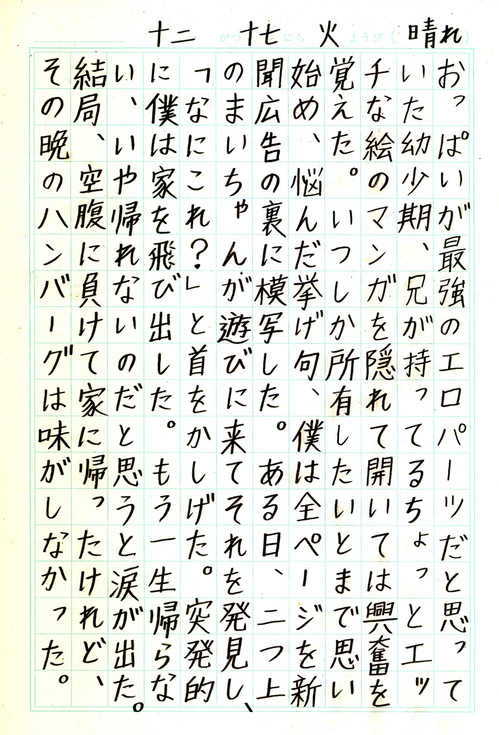 十二 がつ 十七 にち 火 ようび ( 晴れ )
おっぱいが最強のエロパーツだと思って
いた幼少期、兄が持ってるちょっとエッ
チな絵のマンガを隠れて開いては興奮を
覚えた。いつしか所有したいとまで思い
始め、悩んだ挙げ句、僕は全ページを新
聞広告の裏に模写した。ある日、二つ上
のまいちゃんが遊びに来てそれを発見し、
「なにこれ？」と首をかしげた。突発的
に僕は家を飛び出した。もう一生帰らな
い、いや帰れないのだと思うと涙が出た。
結局、空腹に負けて家に帰ったけれど、
その晩のハンバーグは味がしなかった。